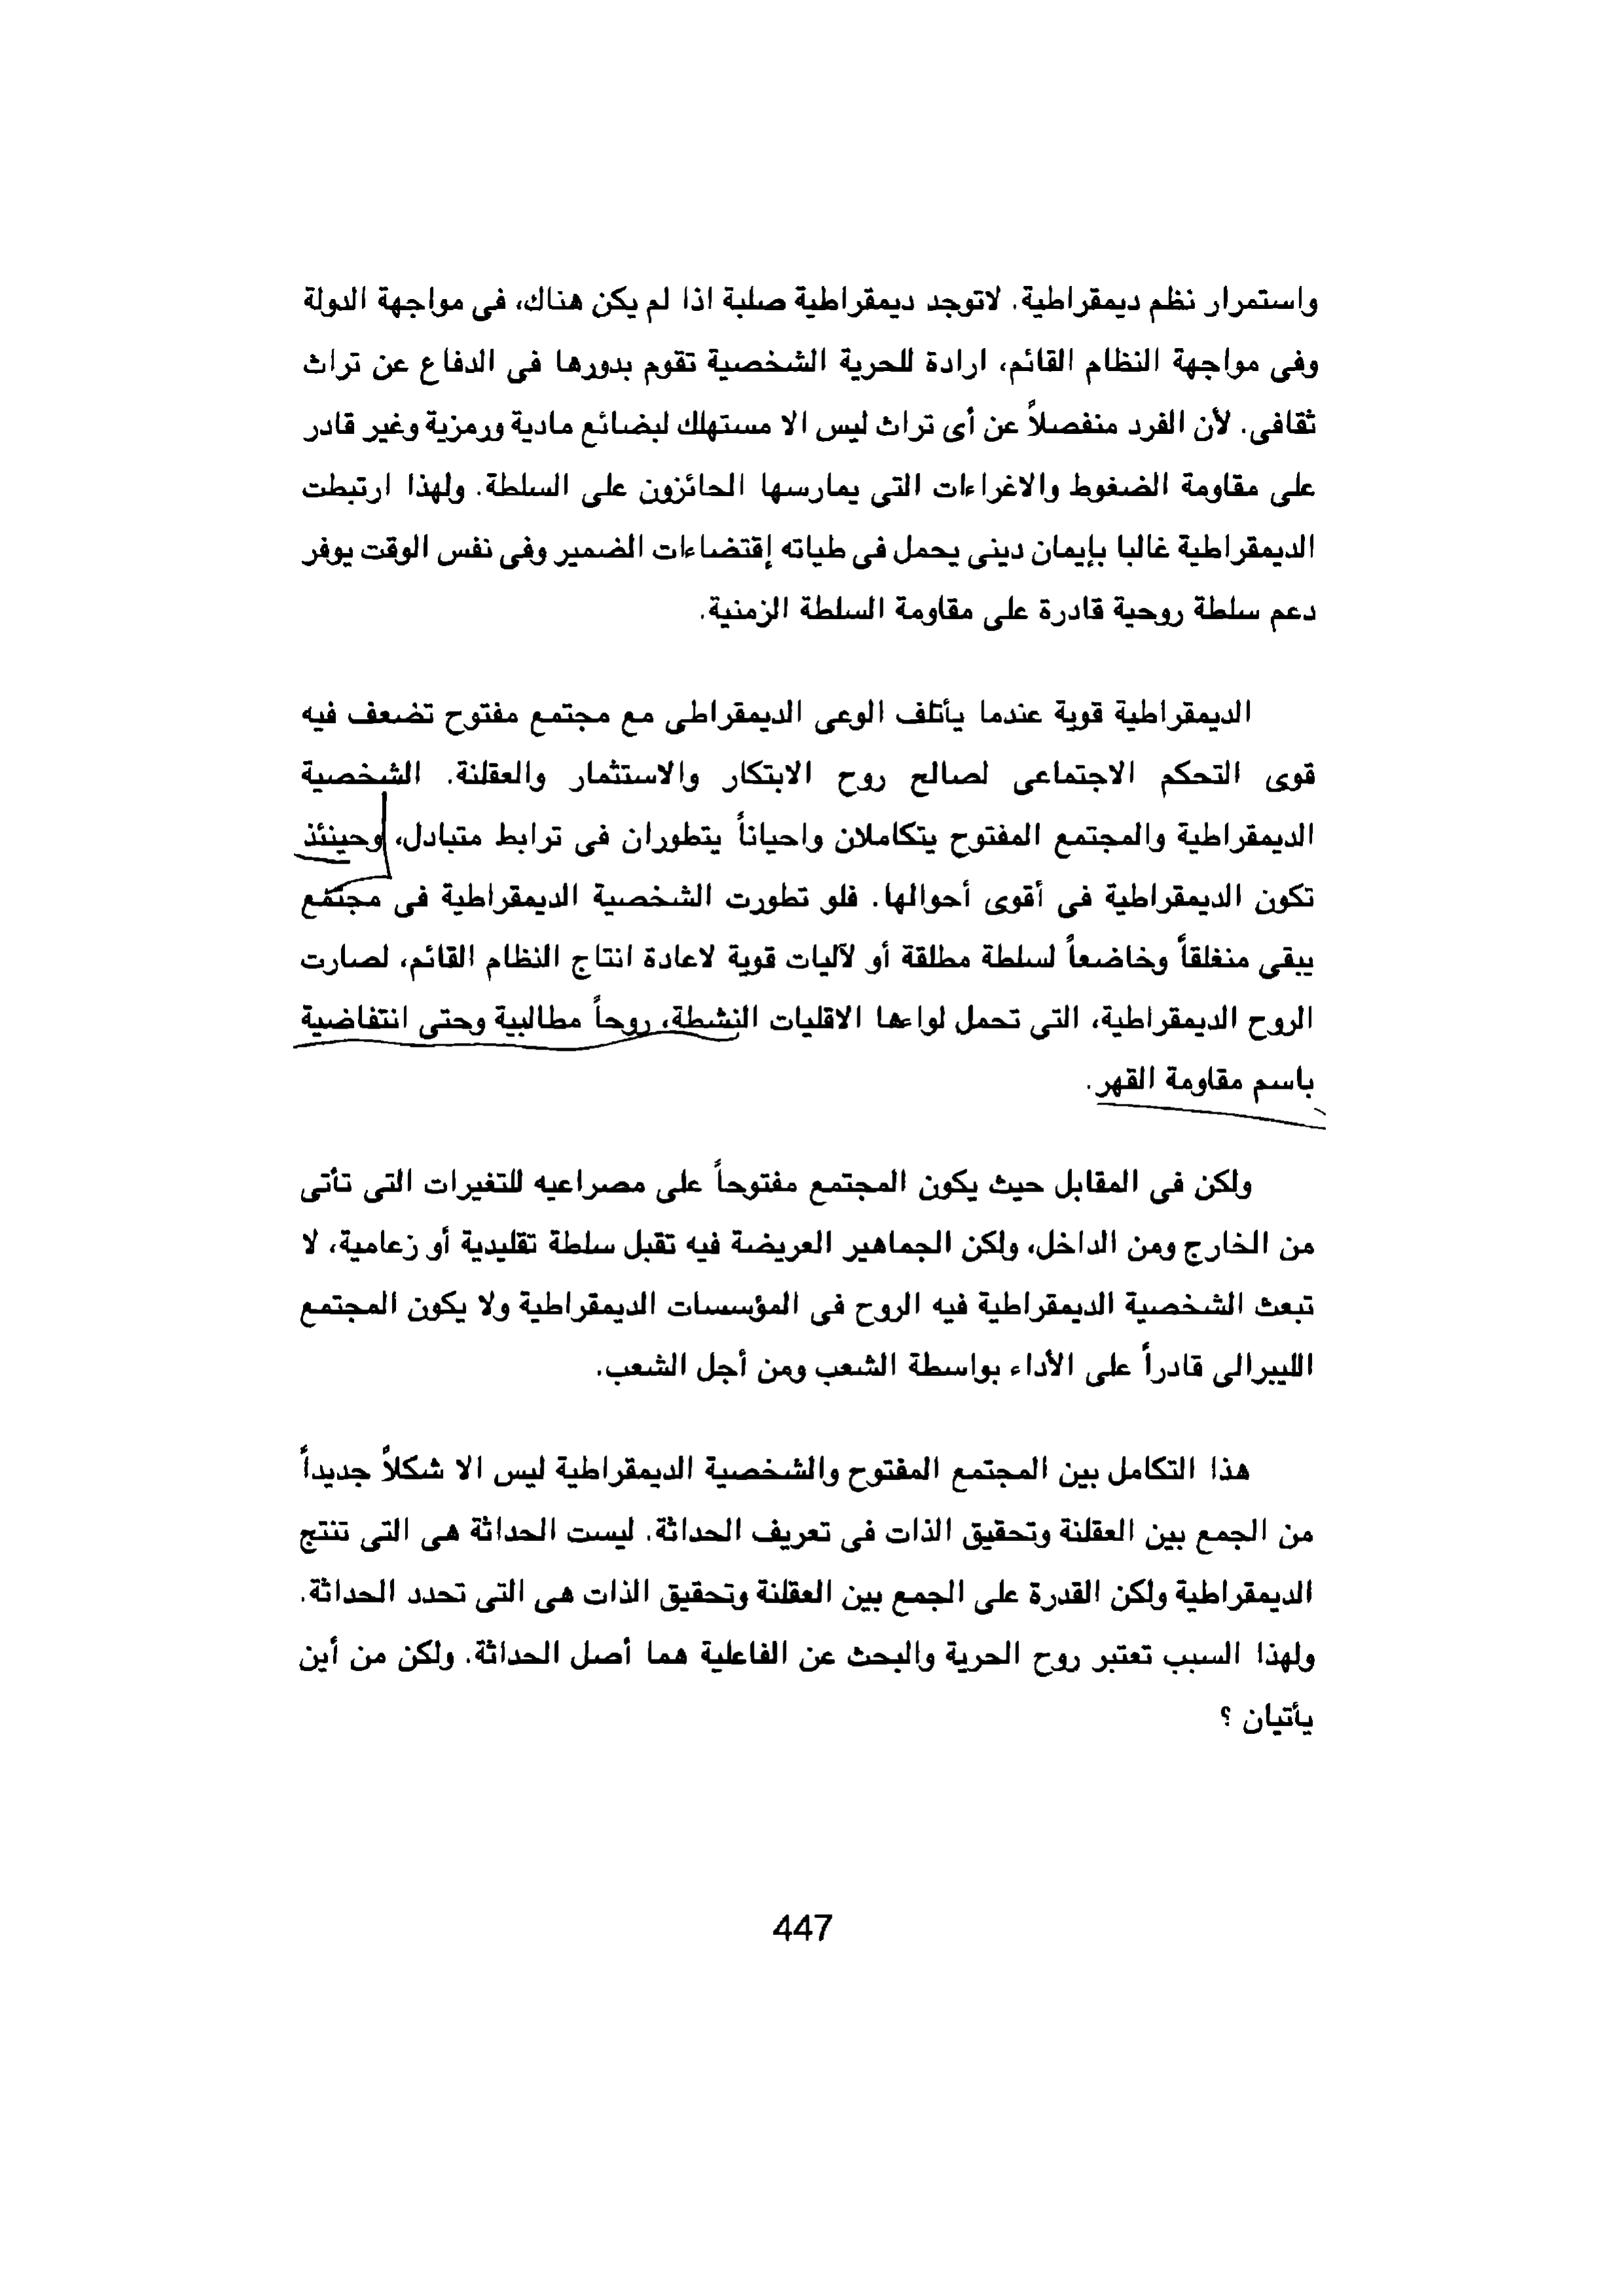 واستمرار نظم ديمقراطية. لاتوجد ديمقراطية صلبة اذا لم يكن هناك، فى مواجهة الدولة
وفى مواجهة النظام القائم، ارادة للحرية الشخصية تقوم بدورها فى الدفاع عن تراث
ثقافى. لأن الفرد منفصلاً عن أى تراث ليس الا مستهلك لبضائع مادية ورمزية وغير قادر
على مقاومة الضغوط والاغراءات التى يمارسها الحائزون على السلطة. ولهذا ارتبطت
الديمقراطية غالبا بإيمان دينى يحمل فى طياته إقتضاءات الضمير وفى نفس الوقت يوفر
دعم سلطة روحية قادرة على مقاومة السلطة الزمنية.
الديمقراطية قوية عندما يأتلف الوعى الديمقراطى مع مجتمع مفتوح تضعف فيه
قوى التحكم الاجتماعى لصالح روح الابتكار والاستثمار والعقلنة. الشخصية
الديمقراطية والمجتمع المفتوح يتكاملان واحياناً يتطوران فى ترابط متبادل، وحينئذ
تكون الديمقراطية فى أقوى أحوالها. فلو تطورت الشخصية الديمقراطية فى مجتمع
يبقى منغلقاً وخاضعاً لسلطة مطلقة أو لآليات قوية لاعادة انتاج النظام القائم، لصارت
الروح الديمقراطية، التى تحمل لواءها الاقليات النشطة، روحاً مطالبية وحتى انتفاضية
باسم مقاومة القهر.
ولكن فى المقابل حيث يكون المجتمع مفتوحاً على مصراعيه للتغيرات التى تأتى
من الخارج ومن الداخل، ولكن الجماهير العريضة فيه تقبل سلطة تقليدية أو زعامية، لا
تبعث الشخصية الديمقراطية فيه الروح فى المؤسسات الديمقراطية ولا يكون المجتمع
الليبرالى قادراً على الأداء بواسطة الشعب ومن أجل الشعب.
هذا التكامل بين المجتمع المفتوح والشخصية الديمقراطية ليس الا شكلاً جديداً
من الجمع بين العقلنة وتحقيق الذات فى تعريف الحداثة. ليست الحداثة هى التى تنتج
الديمقراطية ولكن القدرة على الجمع بين العقلنة وتحقيق الذات هى التى تحدد الحداثة.
ولهذا السبب تعتبر روح الحرية والبحث عن الفاعلية هما أصل الحداثة. ولكن من أين
يأتيان ؟
447